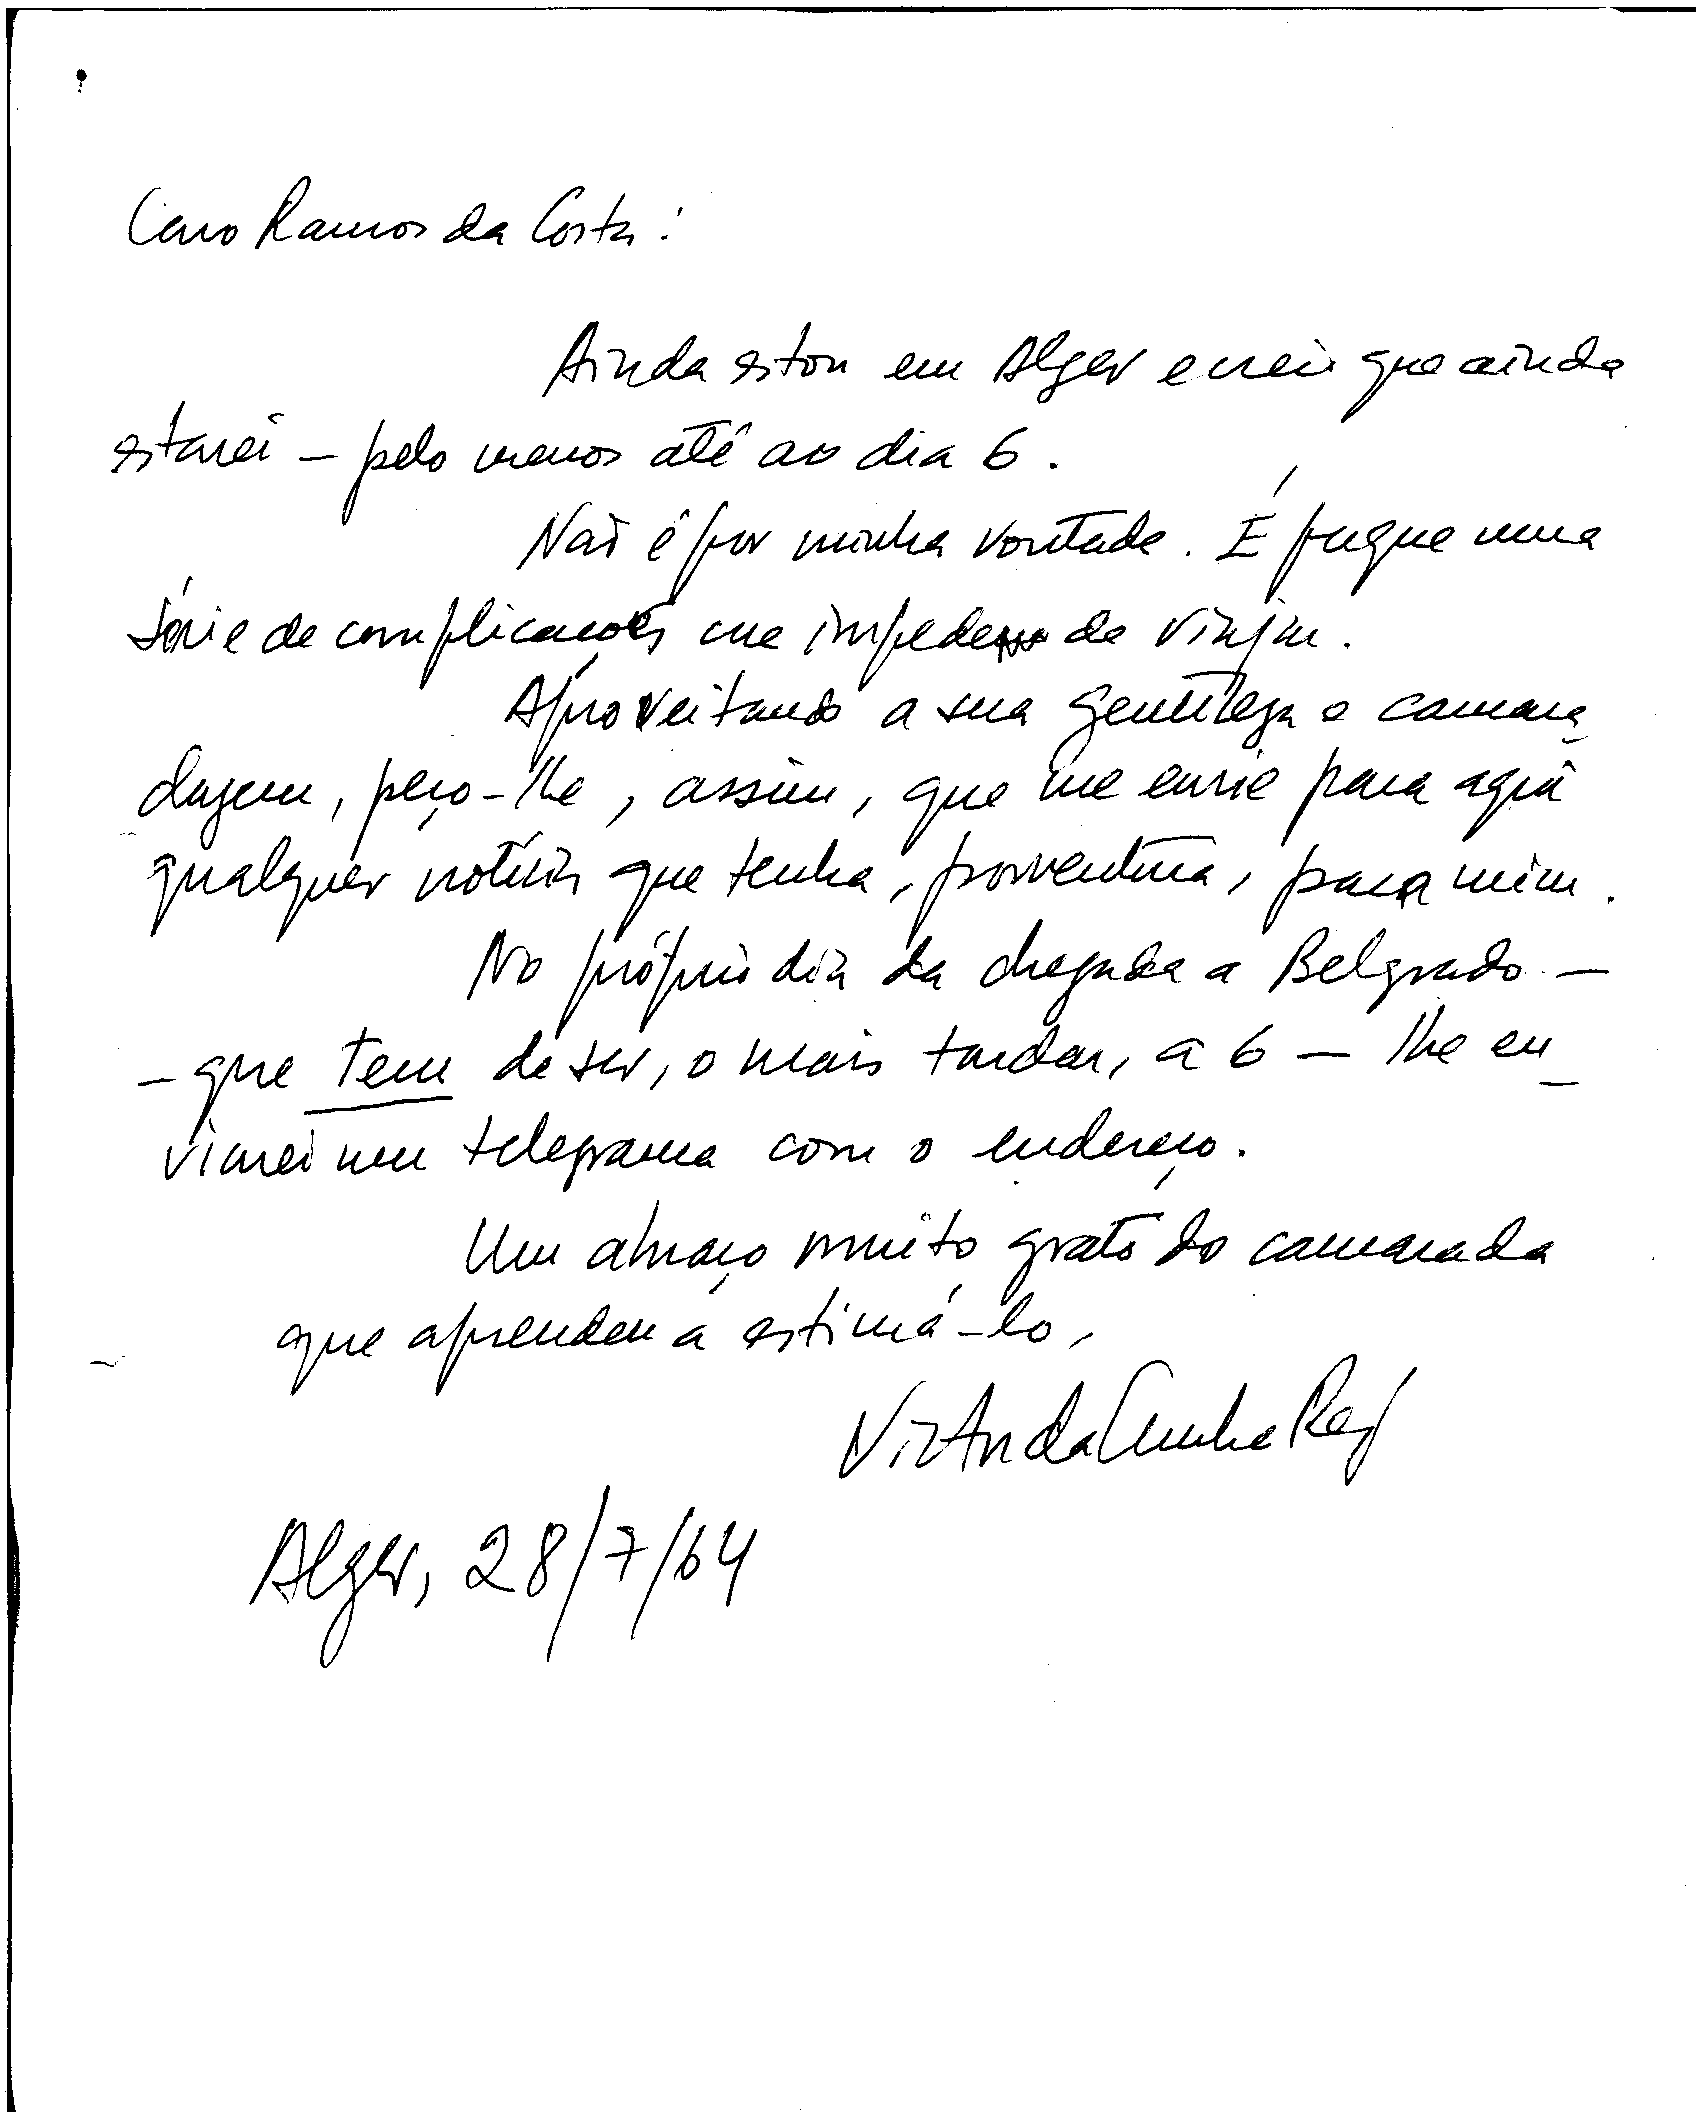 Caro Ramos da Costa:
Ainda estou em Alger e creio que ainda
estarei – pelo menos até ao dia 6.
Não é por minha vontade. É porque uma
série de complicações me impede de viajar.
Aproveitando a sua gentileza e camara-
dagem, peço-lhe, assim, que me envie para aqui
qualquer notícia que tenha, porventura, para mim.
No próprio dia da chegada a Belgrado –
– que tem de ser, o mais tardar, a 6 – lhe en-
viarei um telegrama com o endereço.
Um abraço muito grato do camarada
que aprendeu a estimá-lo,
Vitor da Cunha Rego
Alger, 28/7/64